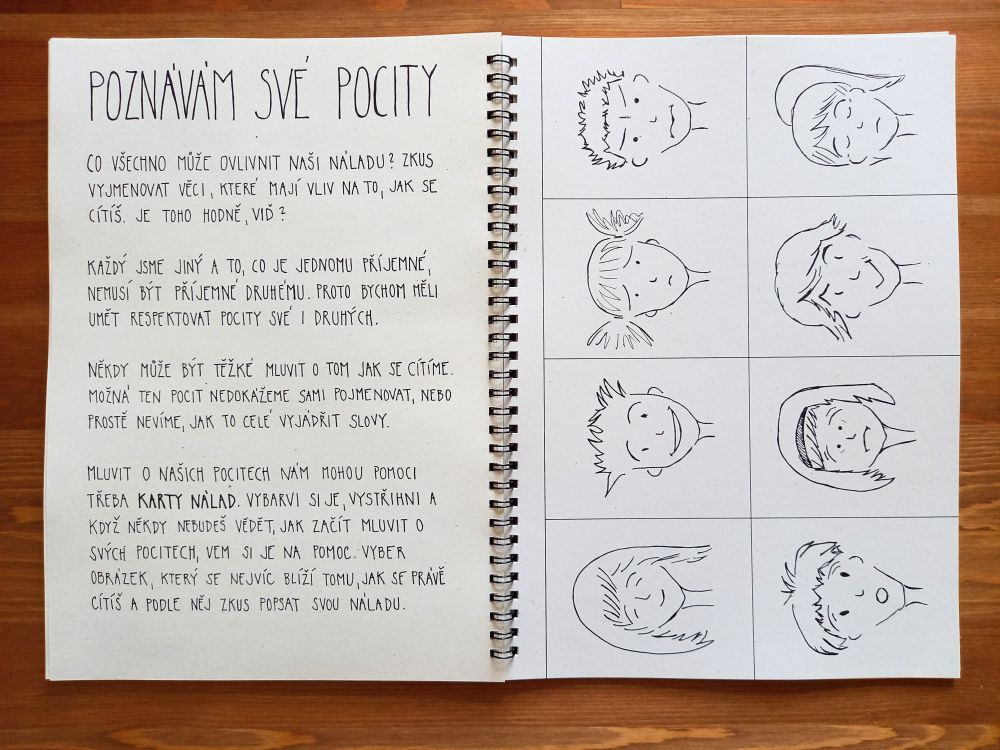 POZNÁVÁM SVÉ POCITY
CO VŠECHNO MŮŽE OVLIVNIT NAŠI NÁLADU? ZKUS
VYJMENOVAT VĚCI, KTERÉ MAJÍ VLIV NA TO, JAK SE
CÍTÍŠ. JE TOHO HODNĚ, VIĎ?
KAŽDÝ JSME JINÝ A TO, CO JE JEDNOMU PŘÍJEMNÉ,
NEMUSÍ BÝT PŘÍJEMNÉ DRUHÉMU. PROTO BYCHOM MĚLI
UMĚT RESPEKTOVAT POCITY SVÉ I DRUHÝCH.
NĚKDY MŮŽE BÝT TĚŽKÉ MLUVIT O TOM JAK SE CÍTÍME.
MOŽNÁ TEN POCIT NEDOKÁŽEME SAMI POJMENOVAT, NEBO
PROSTĚ NEVÍME, JAK TO CELÉ VYJÁDŘIT SLOVY.
MLUVIT O NAŠICH POCITECH NÁM MOHOU POMOCI
TŘEBA KARTY NÁLAD. VYBARVI SI JE, VYSTŘIHNI A
KDYŽ NĚKDY NEBUDEŠ VĚDĚT, JAK ZAČÍT MLUVIT O
SVÝCH POCITECH, VEM SI JE NA POMOC. VYBER
OBRÁZEK, KTERÝ SE NEJVÍC BLÍŽÍ TOMU, JAK SE PRÁVĚ
CÍTÍŠ A PODLE NĚJ ZKUS POPSAT SVOU NÁLADU.